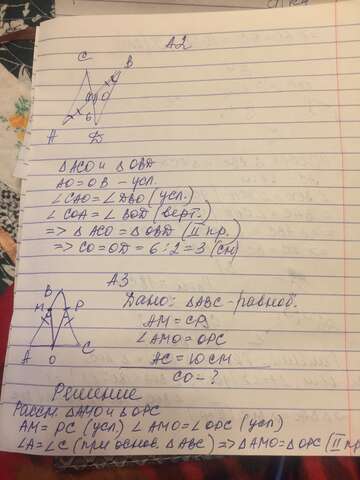 A2
C
B
O
6
A
D
△ACO и △OBD
AO = OB - усл.
∠CAO = ∠DBO (усл.)
∠COA = ∠BOD (верт.)
=> △ACO = △OBD (II пр.)
=> CO = OD = 6 : 2 = 3 (см)
A3
B
M P
A O C
Дано: △ABC - равноб.
AM = CP
∠AMO = ∠OPC
AC = 10 см
CO - ?
Решение
Рассм. △AMO и △OPC
AM = PC (усл) ∠AMO = ∠OPC (усл)
∠A = ∠C (при основ. △ABC) => △AMO = △OPC (II пр